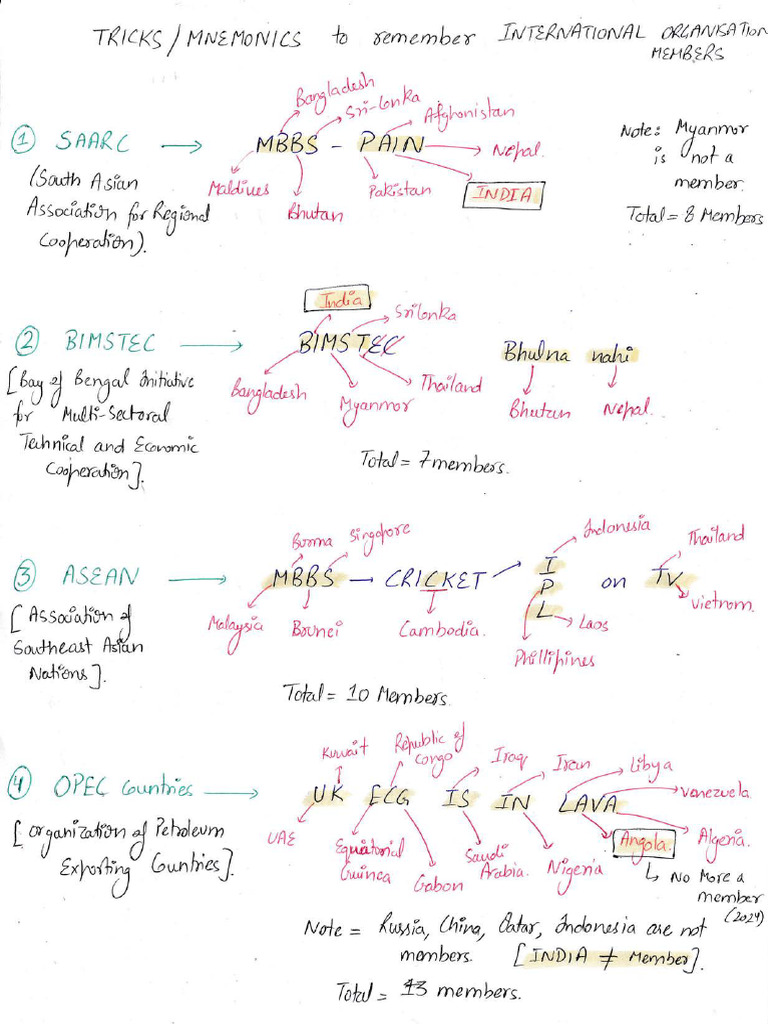 TRICKS/MNEMONICS to remember INTERNATIONAL ORGANISATION
MEMBERS
Bangladesh
Sri-Lanka
Afghanistan
① SAARC → MBBS - PAIN
Nepal.
Maldives
Bhutan
Pakistan
INDIA
(South Asian
Association for Regional
Cooperation).
Note: Myanmar
is not a
member.
Total = 8 Members
India
Srilanka
② BIMSTEC → BIMSTEC
Bhulna nahi
Bangladesh
Myanmar
Thailand
Bhutan
Nepal.
[Bay of Bengal Initiative
for Multi-Sectoral
Technical and Economic
Cooperation].
Total = 7 members.
Burma
Singapore
Indonesia
Thailand
③ ASEAN → MBBS → CRICKET → I
P
L
on TV
Malaysia
Brunei
Cambodia.
Laos
Phillipines
Vietnam.
[Association of
Southeast Asian
Nations].
Total = 10 Members.
Kuwait
Republic of
Congo
Iraq
Iran
Libya
Venezuela.
④ OPEC Countries → UK ECG IS IN LAVA
UAE
Equatorial
Guinea
Gabon
Saudi
Arabia.
Nigeria
Angola.
Algeria.
↳ No More a
member
(2024)
[Organization of Petroleum
Exporting Countries].
Note = Russia, China, Qatar, Indonesia are not
members. [INDIA ≠ Member].
Total = 13 members.